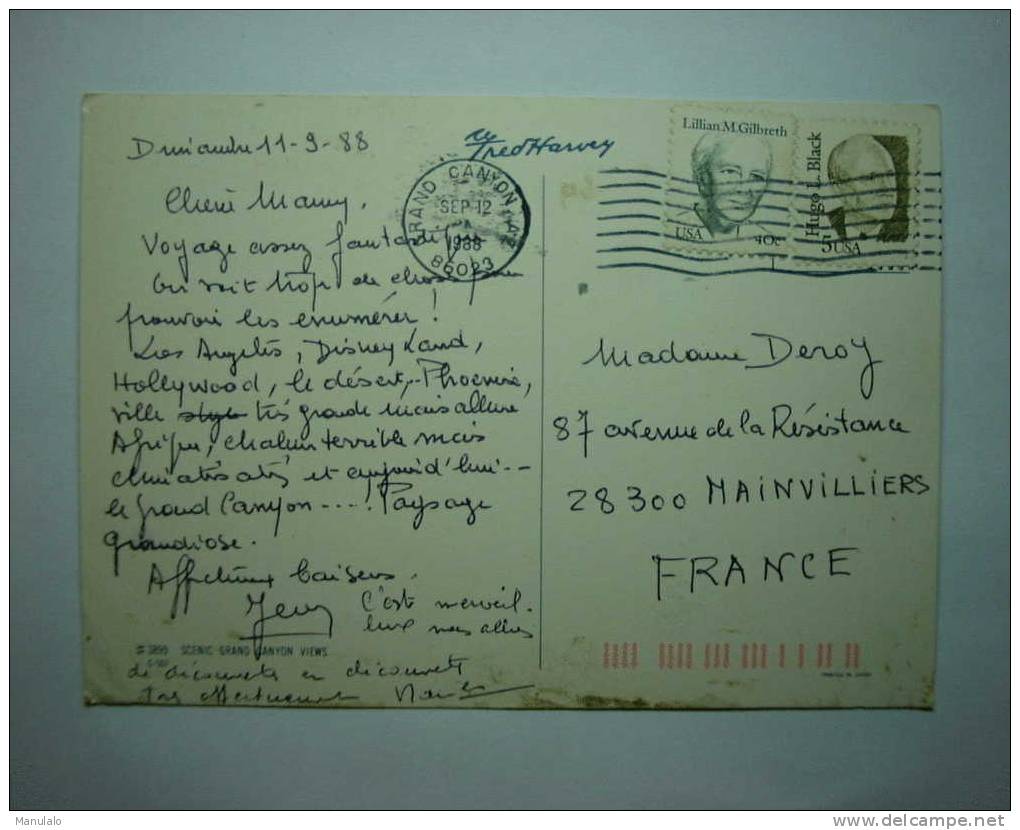 Dimanche 11-9-88
Chère Mamy,
Voyage assez fantastique
On voit trop de choses pour
pouvoir les énumérer !
Los Angelès, Disney Land,
Hollywood, le désert,.. Phoenix,
ville style très grande mais allure
Afrique, chaleur terrible mais
climatisation et aujourd'hui --
le grand Canyon ---! Paysage
grandiose.
Affectueux baisers.
C'est merveil-
leux nous allons
# 3899 SCENIC GRAND CANYON VIEWS
de découverte en découverte
Très affectueusement
Fred Harvey
GRAND CANYON AZ
SEP 12
1988
86023
Lillian M. Gilbreth
USA 40c
Hugo L. Black
5 USA
Madame Deroy
87 avenue de la Résistance
28300 MAINVILLIERS
FRANCE
Manulalo
www.delcampe.net